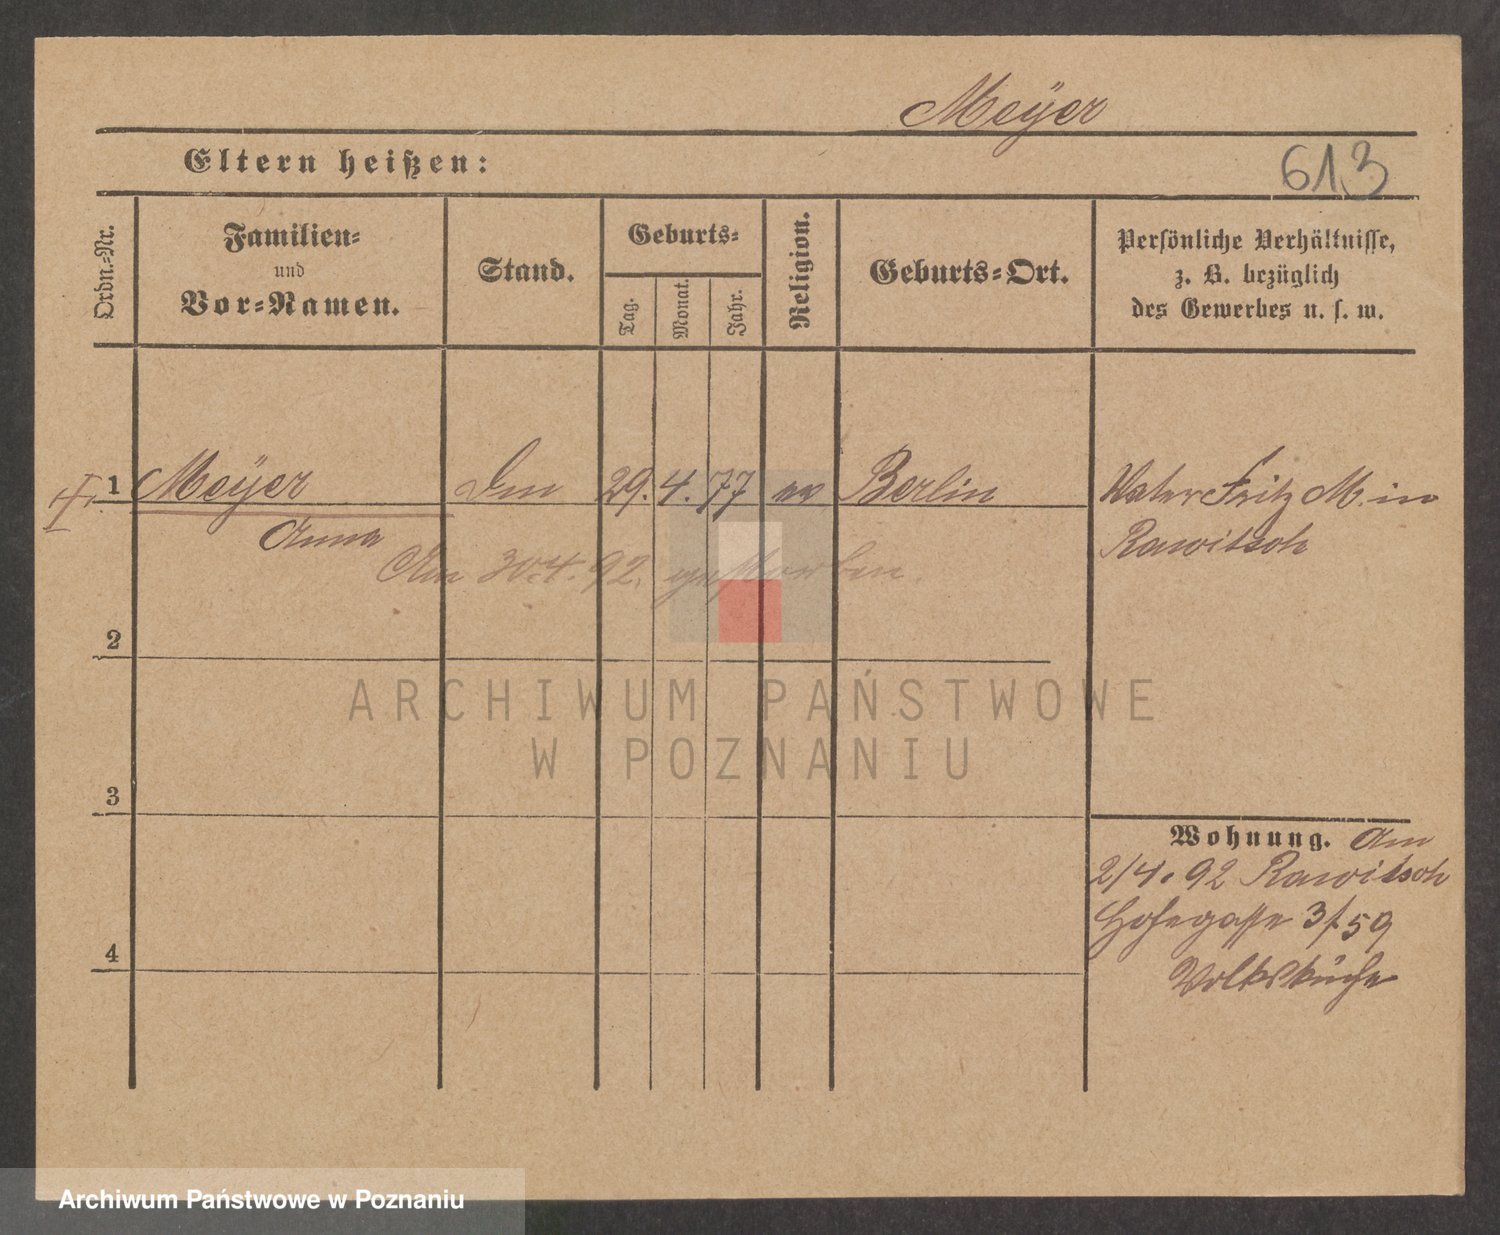 Meÿer
Eltern heißen:
613
Ordn.=Nr.
Familien=
und
Vor=Namen.
Stand.
Geburts=
Tag.
Monat.
Jahr.
Religion.
Geburts=Ort.
Persönliche Verhältnisse,
z. B. bezüglich
des Gewerbes u. s. w.
1 Meÿer 29. 4. 77 ev Berlin
Vater Fritz M. in
Rawitsch
Anna
Am 30.4.92. gestorben.
2
ARCHIWUM PAŃSTWOWE
W POZNANIU
3
Wohnung. Am
2/4. 92 Rawitsch
3/59
Volksküche
4
Archiwum Państwowe w Poznaniu